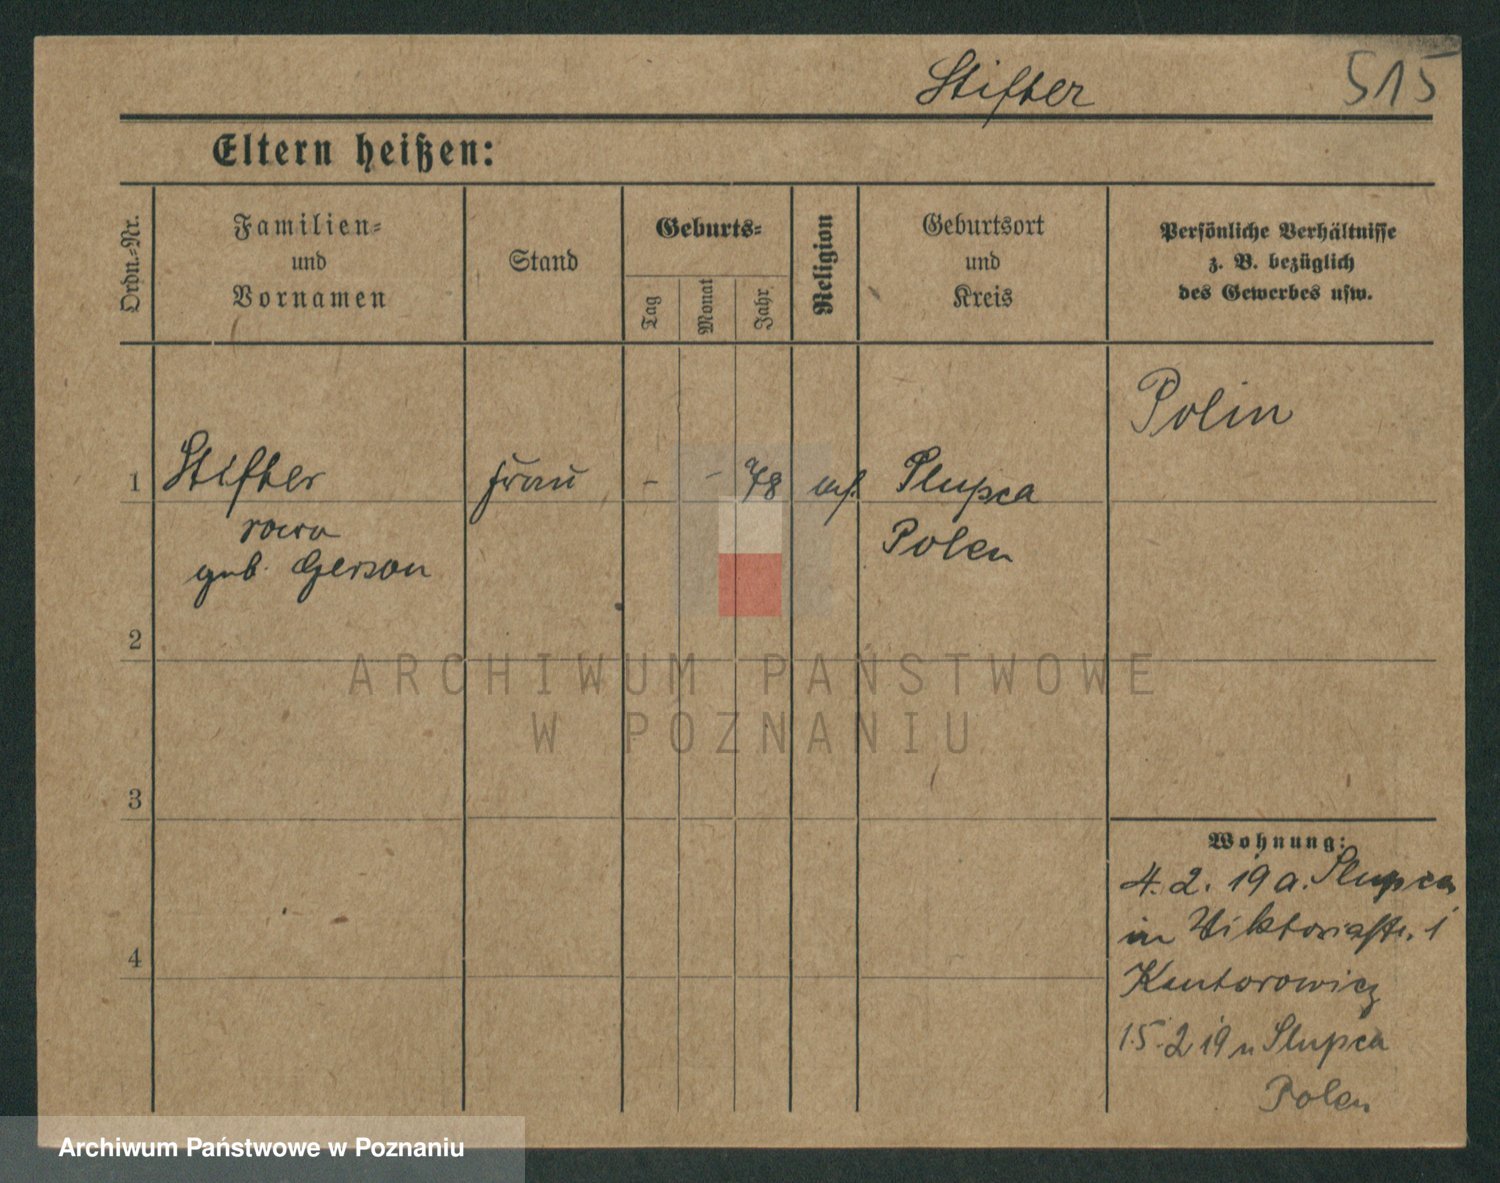 Stifter 515
Eltern heißen:
Ordn.-Nr.
Familien-
und
Vornamen
Stand
Geburts-
Tag
Monat
Jahr
Religion
Geburtsort
und
Kreis
Persönliche Verhältnisse
z. B. bezüglich
des Gewerbes usw.
Polin
1 Stifter Frau - - 78 Slupca
geb. Gerson Polen
2
3
4
Wohnung:
4. 2. 19 a. Slupca
in Viktoriastr. 1
Kantorowicz
15. 2 19 n Slupca
Polen
ARCHIWUM PAŃSTWOWE
W POZNANIU
Archiwum Państwowe w Poznaniu